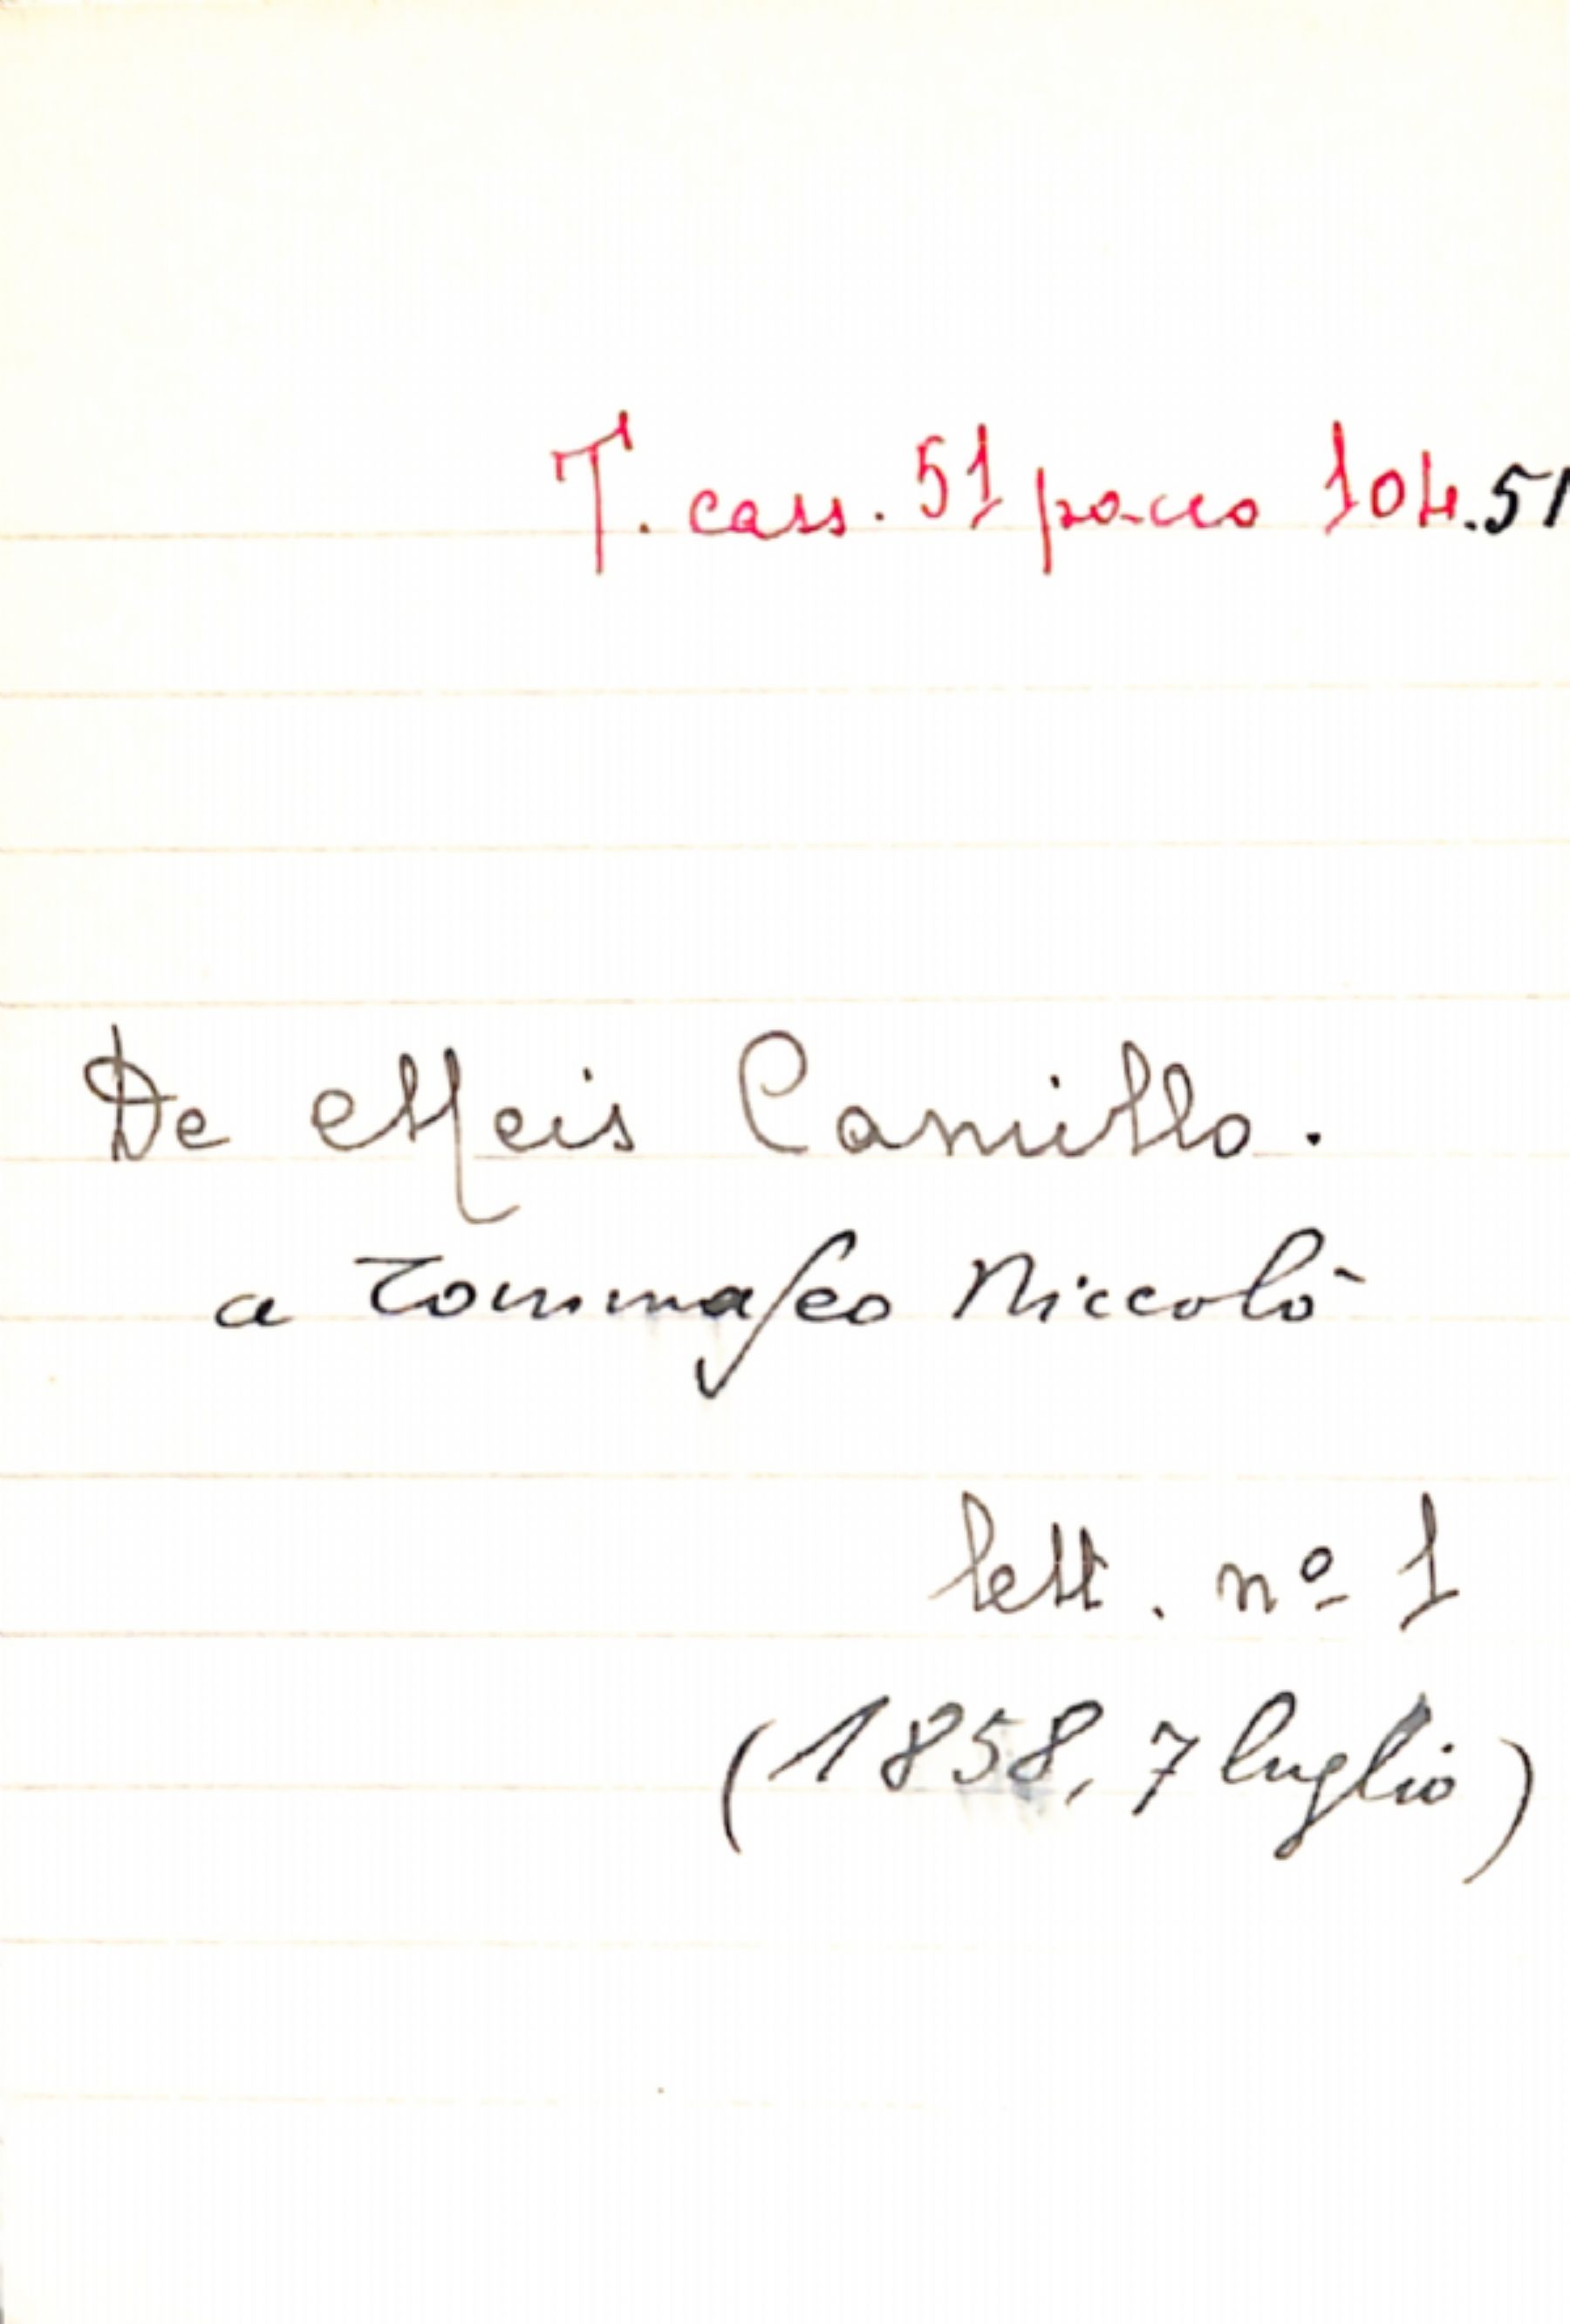 T. cass. 51 pacco 104.51
De Meis Camillo.
a Tommaseo Niccolò
lett. nº 1
(1858, 7 luglio)